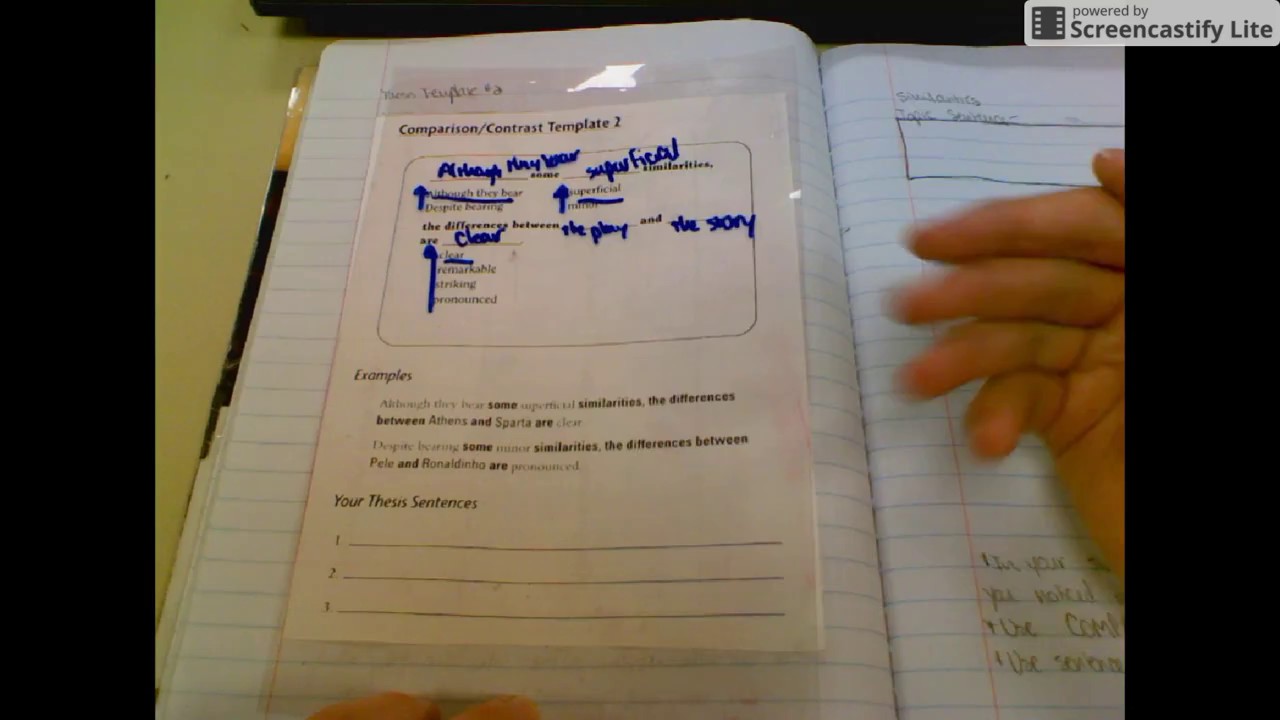 powered by
Screencastify Lite
Template #2
Comparison/Contrast Template 2
Although they bear some superficial similarities,
Although they bear superficial
Despite bearing minor
the differences between the play and the story
are clear
clear
remarkable
striking
pronounced
Examples
Although they bear some superficial similarities, the differences
between Athens and Sparta are clear.
Despite bearing some minor similarities, the differences between
Pele and Ronaldinho are pronounced.
Your Thesis Sentences
1.
2.
3.
Similarities
Topic Sentence-
In your
you noticed
Use
Use sentence